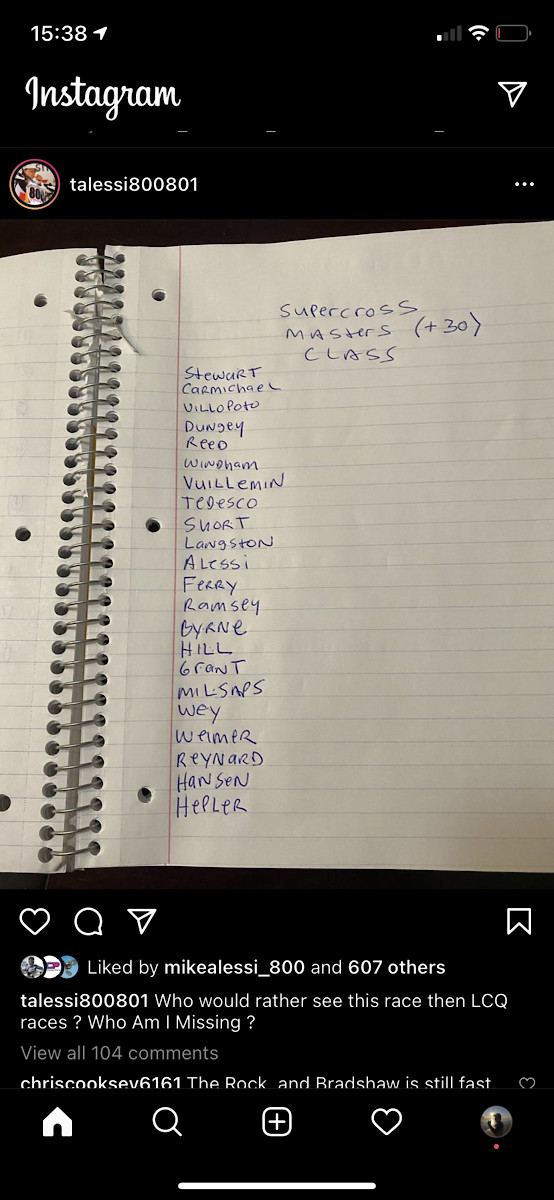 15:38
Instagram
talessi800801
Supercross
Masters (+30)
CLASS
Stewart
Carmichael
Villopoto
Dungey
Reed
Windham
Vuillemin
Tedesco
Short
Langston
Alessi
Ferry
Ramsey
Byrne
Hill
Grant
Milsaps
Wey
Weimer
Reynard
Hansen
Hepler
Liked by mikealessi_800 and 607 others
talessi800801 Who would rather see this race then LCQ
races ? Who Am I Missing ?
View all 104 comments
chriscooksey6161 The Rock and Bradshaw is still fast